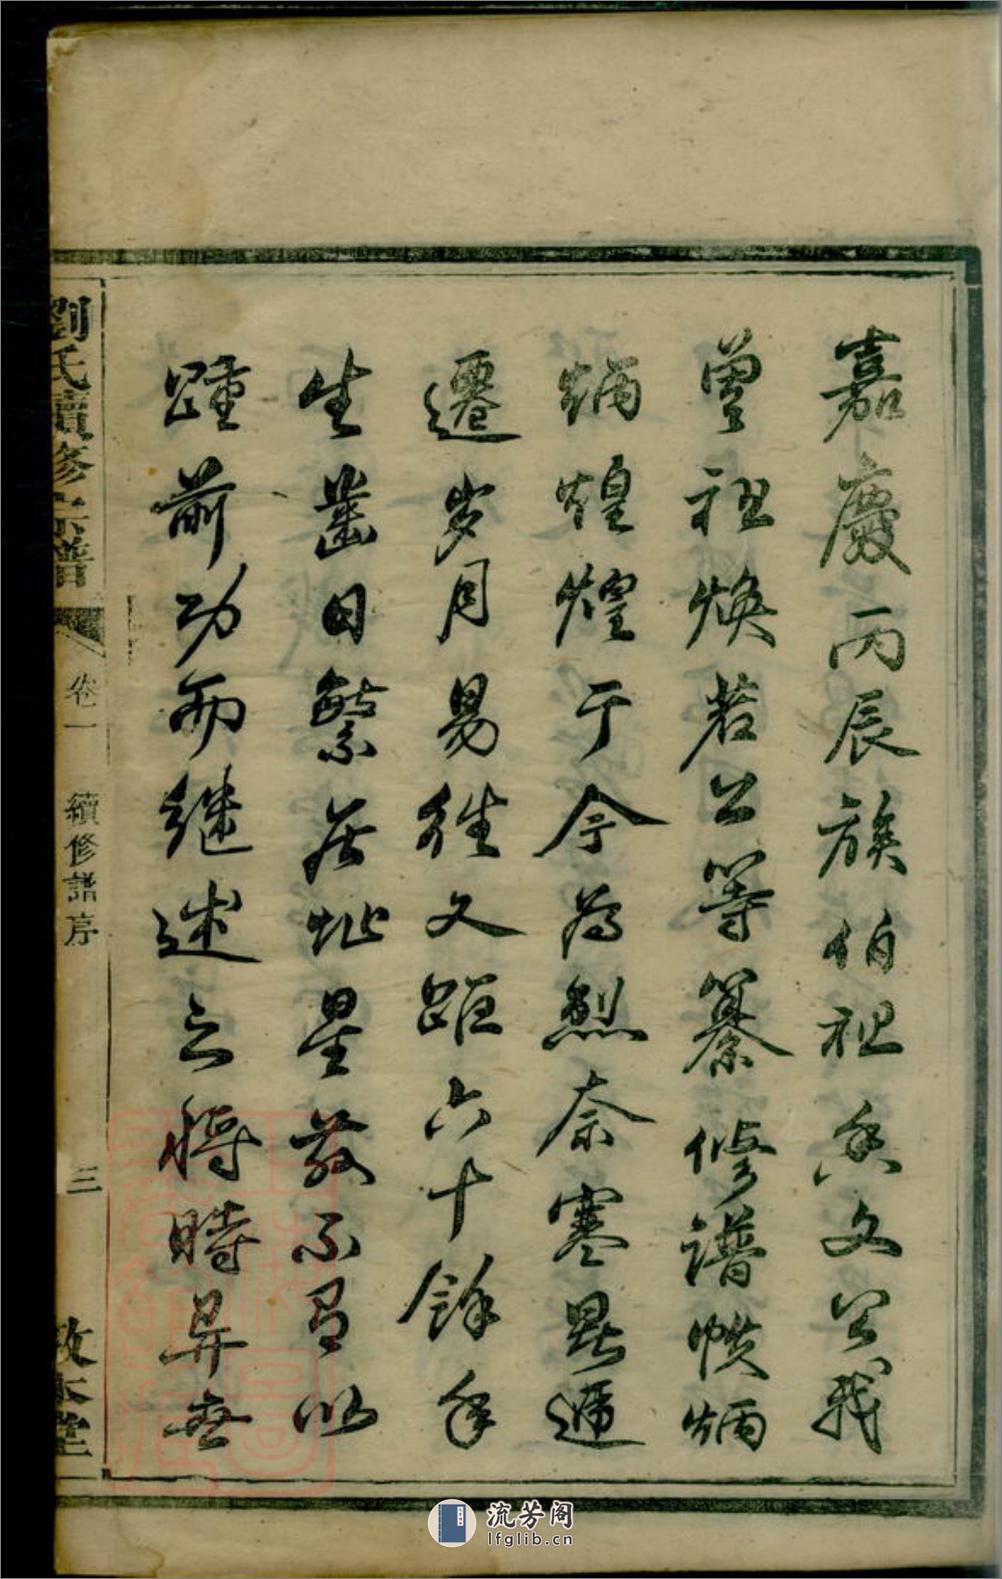 嘉慶丙辰族伯祖矣文公我
曾祖煥若公等纂修譜帙炳
炳煌煌于今為烈奈寒暑遞
遷岁月易徃又距六十餘年
生齒日繁居址星散不有以
踵前功而继述之將時异世
劉氏續修宗譜
卷一
續修譜序
三
敦本堂
流芳阁
lfglib.cn